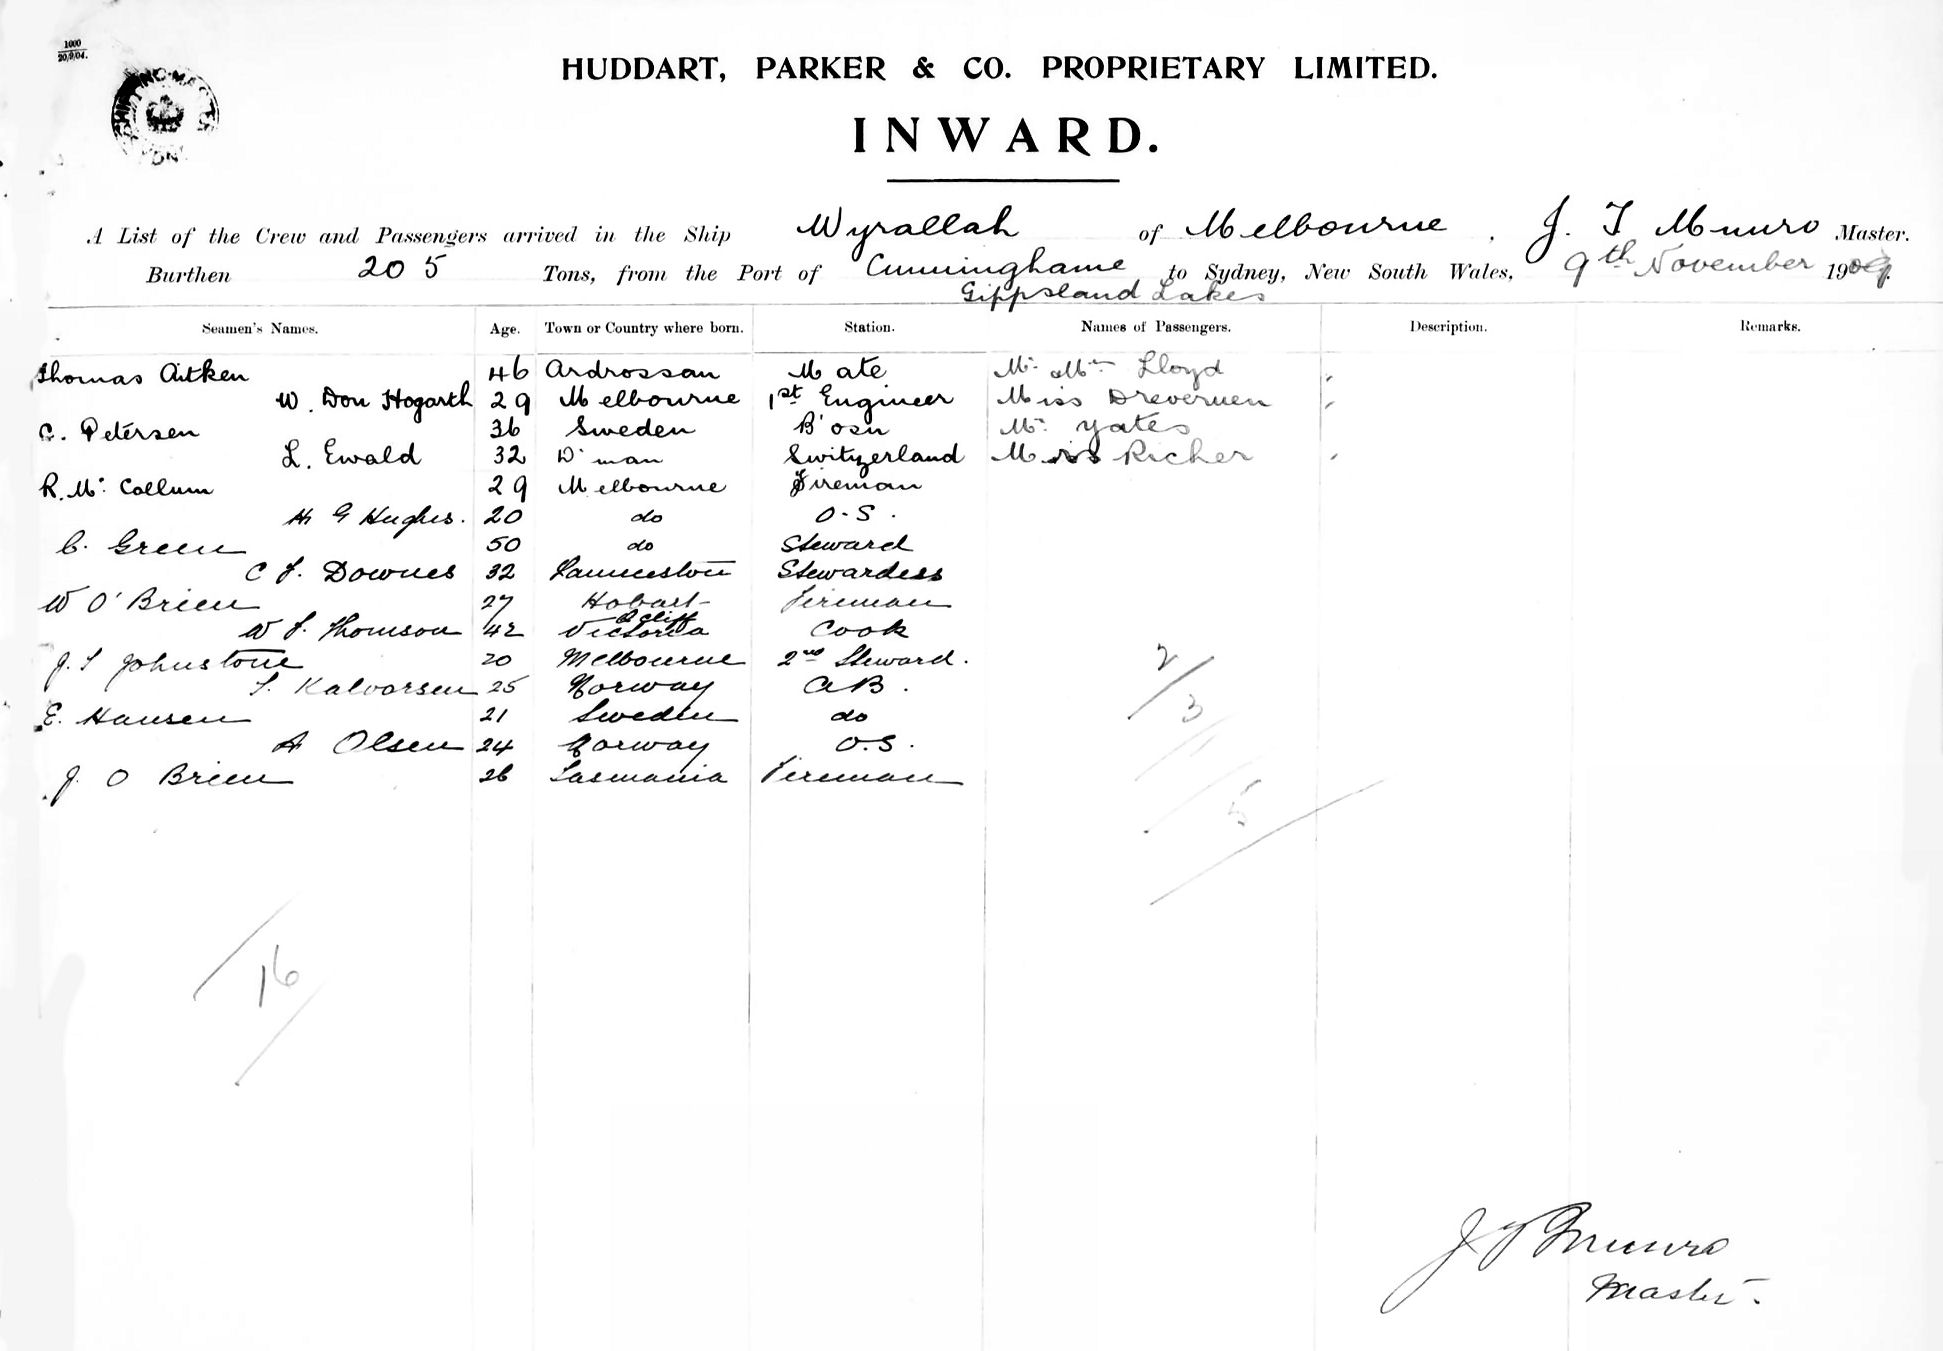 1000
20/9/04.
HUDDART, PARKER & CO. PROPRIETARY LIMITED.
INWARD.
A List of the Crew and Passengers arrived in the Ship Wyrallah of Melbourne, J. T Munro Master.
Burthen 205 Tons, from the Port of Cunninghame to Sydney, New South Wales, 9th November 1909
Gippsland Lakes
Seamen's Names. Age. Town or Country where born. Station. Names of Passengers. Description. Remarks.
Thomas Aitken 46 Ardrossan Mate Mr Mrs Lloyd
W. Don Hogarth 29 Melbourne 1st Engineer Miss Drevermen
C. Petersen 36 Sweden B'osn Mr Yates
L. Ewald 32 D'man Switzerland Miss Richer
R. Mc Callum 29 Melbourne Fireman
H G Hughes. 20 do O.S.
C. Green 50 do Steward
C F. Downes 32 Launceston Stewardess
W O'Brien 27 Hobart Fireman
W F. Thomson 42 Victoria Cook
J. S Johnstone 20 Melbourne 2nd Steward.
S. Kalvorsen 25 Norway AB.
E. Hansen 21 Sweden do
A Olsen 24 Norway O.S.
J. O Brien 26 Tasmania Fireman
2
3
5
16
J T Munro
Master.